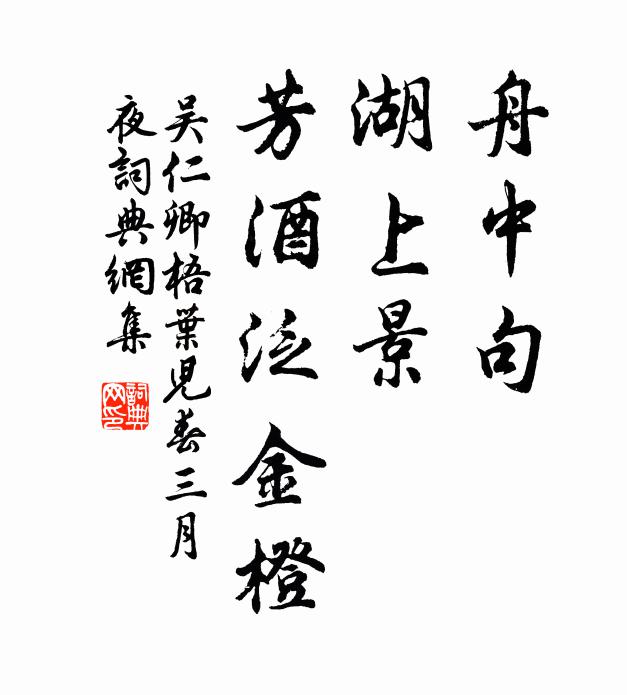 舟中句
湖上景
芳酒泛金橙
吴仁卿梧葉児春三月
夜詞典網集
詞典
网印